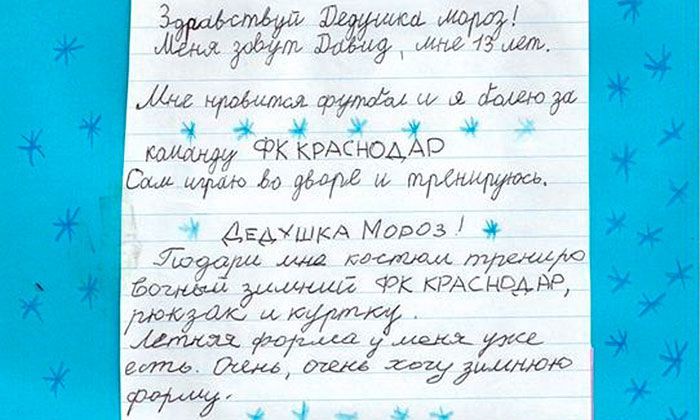 Здравствуй Дедушка мороз!
Меня зовут Давид, мне 13 лет.
Мне нравится футбол и я болею за
команду ФК КРАСНОДАР
Сам играю во дворе и тренируюсь.
ДЕДУШКА МОРОЗ!
Подари мне костюм трениро
вочный зимний ФК КРАСНОДАР,
рюкзак и куртку.
Летняя форма у меня уже
есть. Очень, очень хочу зимнюю
форму.